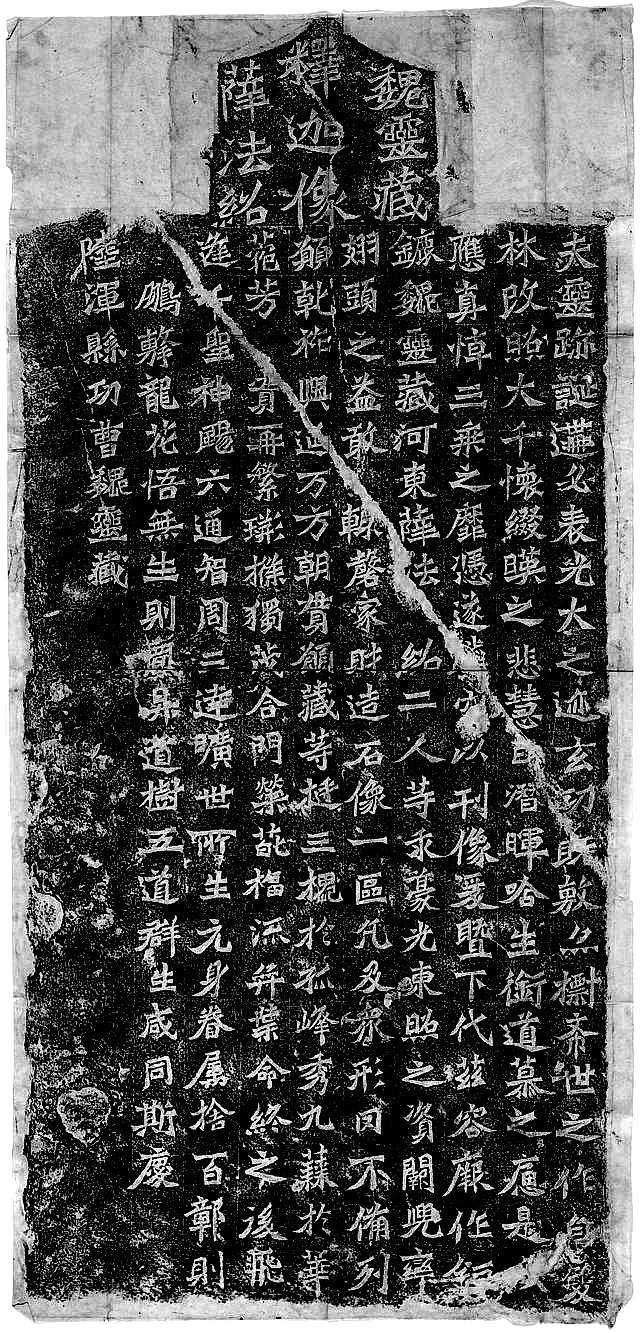 魏靈藏
釋迦像
薛法紹
夫靈跡誕遘必表光大之迹玄功既敷亦摽希世之作自雙
林改昭大千懷綴暎之悲慧日潛暉唅生銜道慕之痛是以
應真悼三乘之靡憑遂騰空以刊像爰暨下代茲容厥作鉅
鏕魏靈藏河東薛法紹二人等求豪光東照之資闕兜率
翅頭之益敢輒磬家財造石像一區凡及衆形罔不備列
願乾祚興延万方朝貫願藏等挺三槐於孤峰秀九蕀於華
菀芳實再繁荊條獨茂合門榮葩福流奕葉命終之後飛
逢千聖神颺六通智周三達曠世所生元身眷屬捨百鄣則
鵬擊龍花悟無生則鳳昇道樹五道群生咸同斯慶
陸渾縣功曹魏靈藏